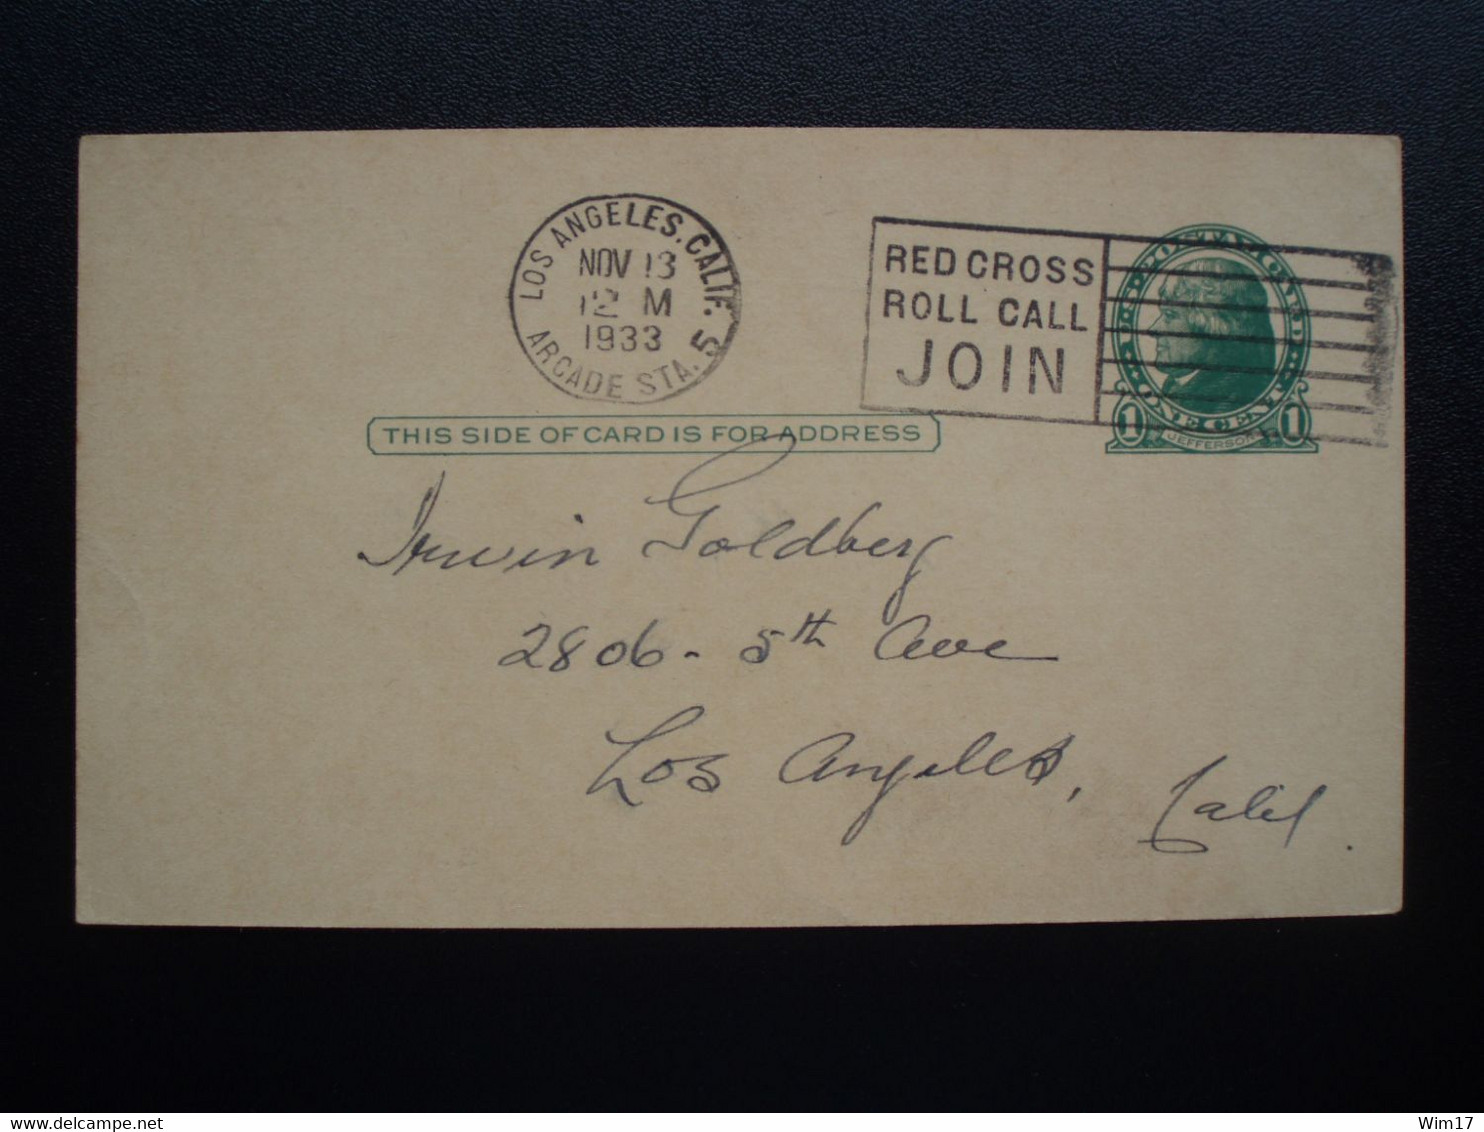 LOS ANGELES, CALIF.
NOV 13
12 M
1933
ARCADE STA. 5
RED CROSS
ROLL CALL
JOIN
U.S. POSTAL CARD
ONE CENT
1 JEFFERSON 1
THIS SIDE OF CARD IS FOR ADDRESS
Irwin Goldberg
2806 - 5th Ave
Los Angeles, Calif.
delcampe.net
Wim17